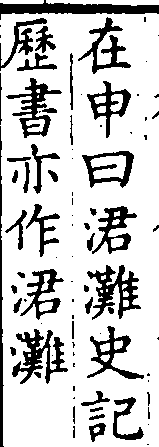 在申曰涒灘史記
歷書亦作涒灘